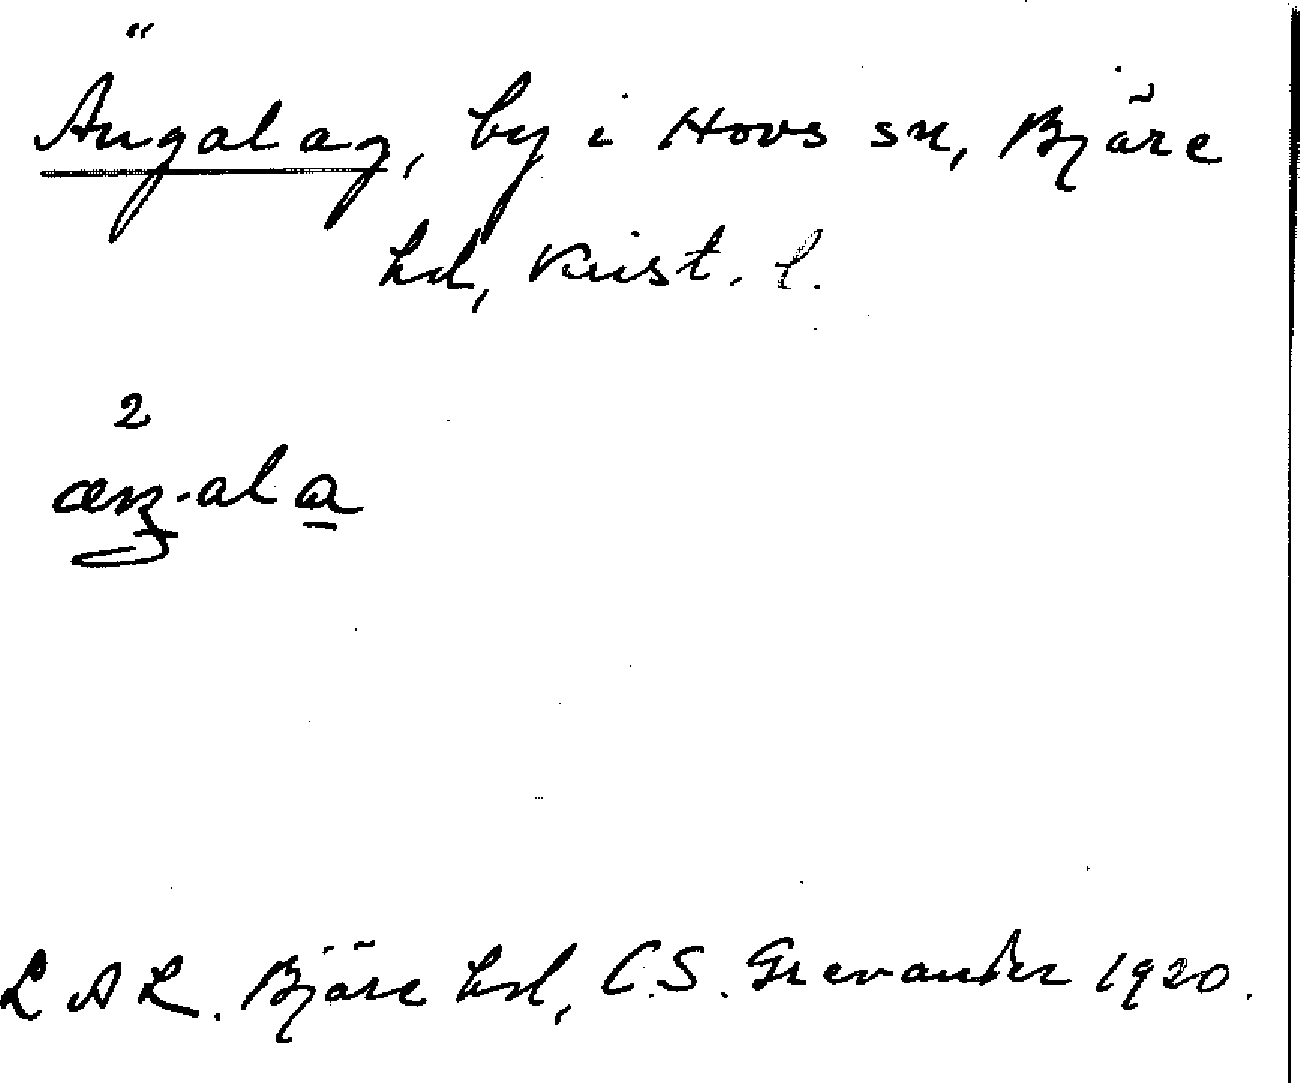 Ängalag, by i Hovs sn, Bjäre
hd, Krist. l.
2
L A L. Bjäre hd, C.S. Grevander 1920.